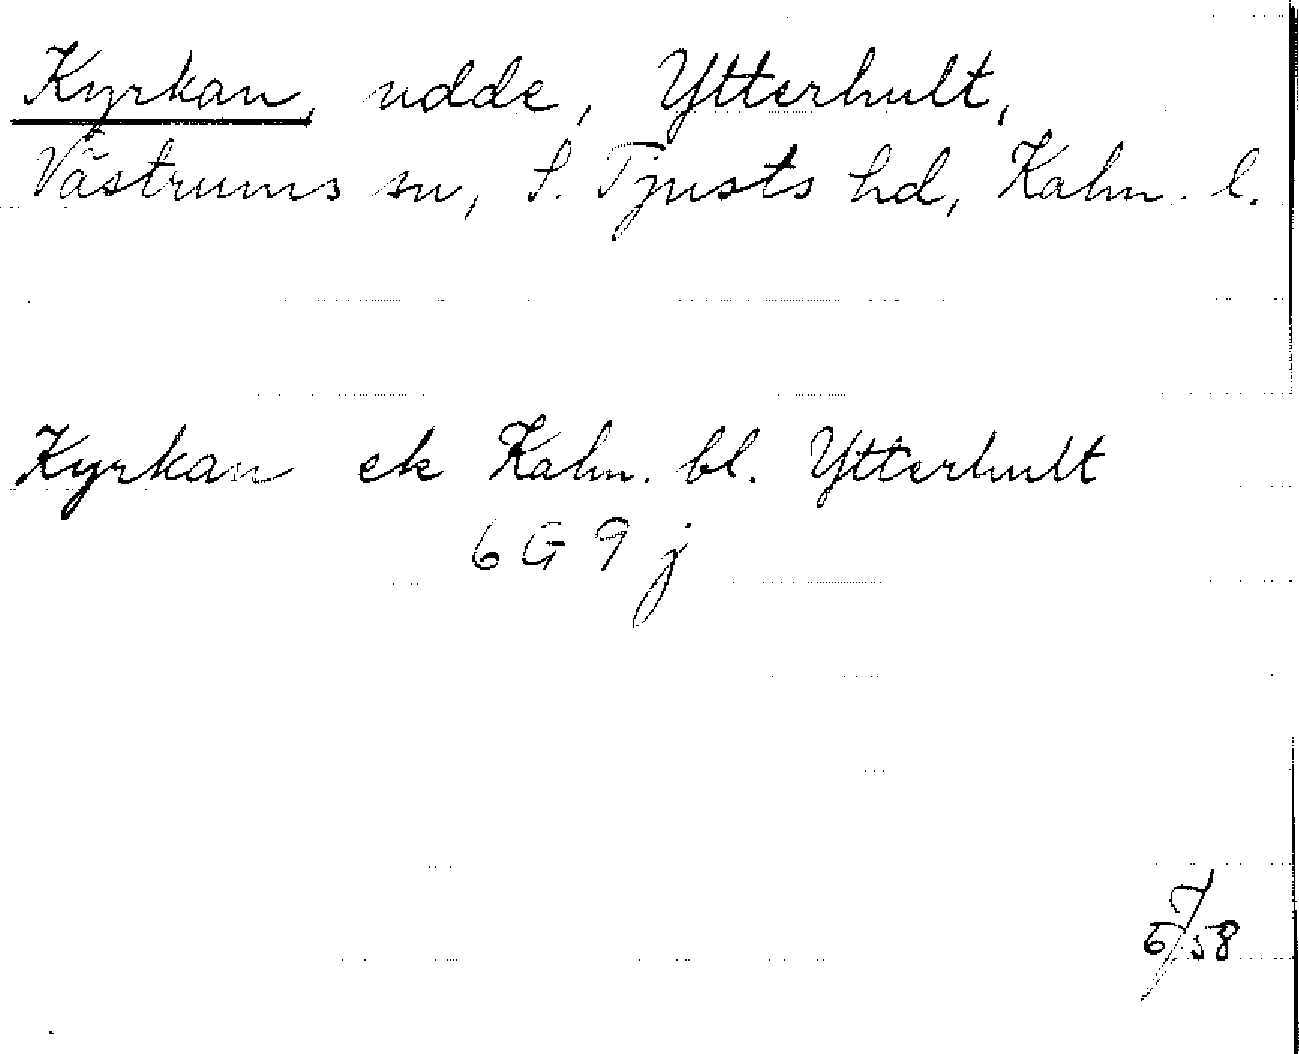 Kyrkan, udde, Ytterhult,
Västrums sn, S. Tjusts hd, Kalm. l.
Kyrkan ek Kalm. bl. Ytterhult
6 G 9 j
5/58